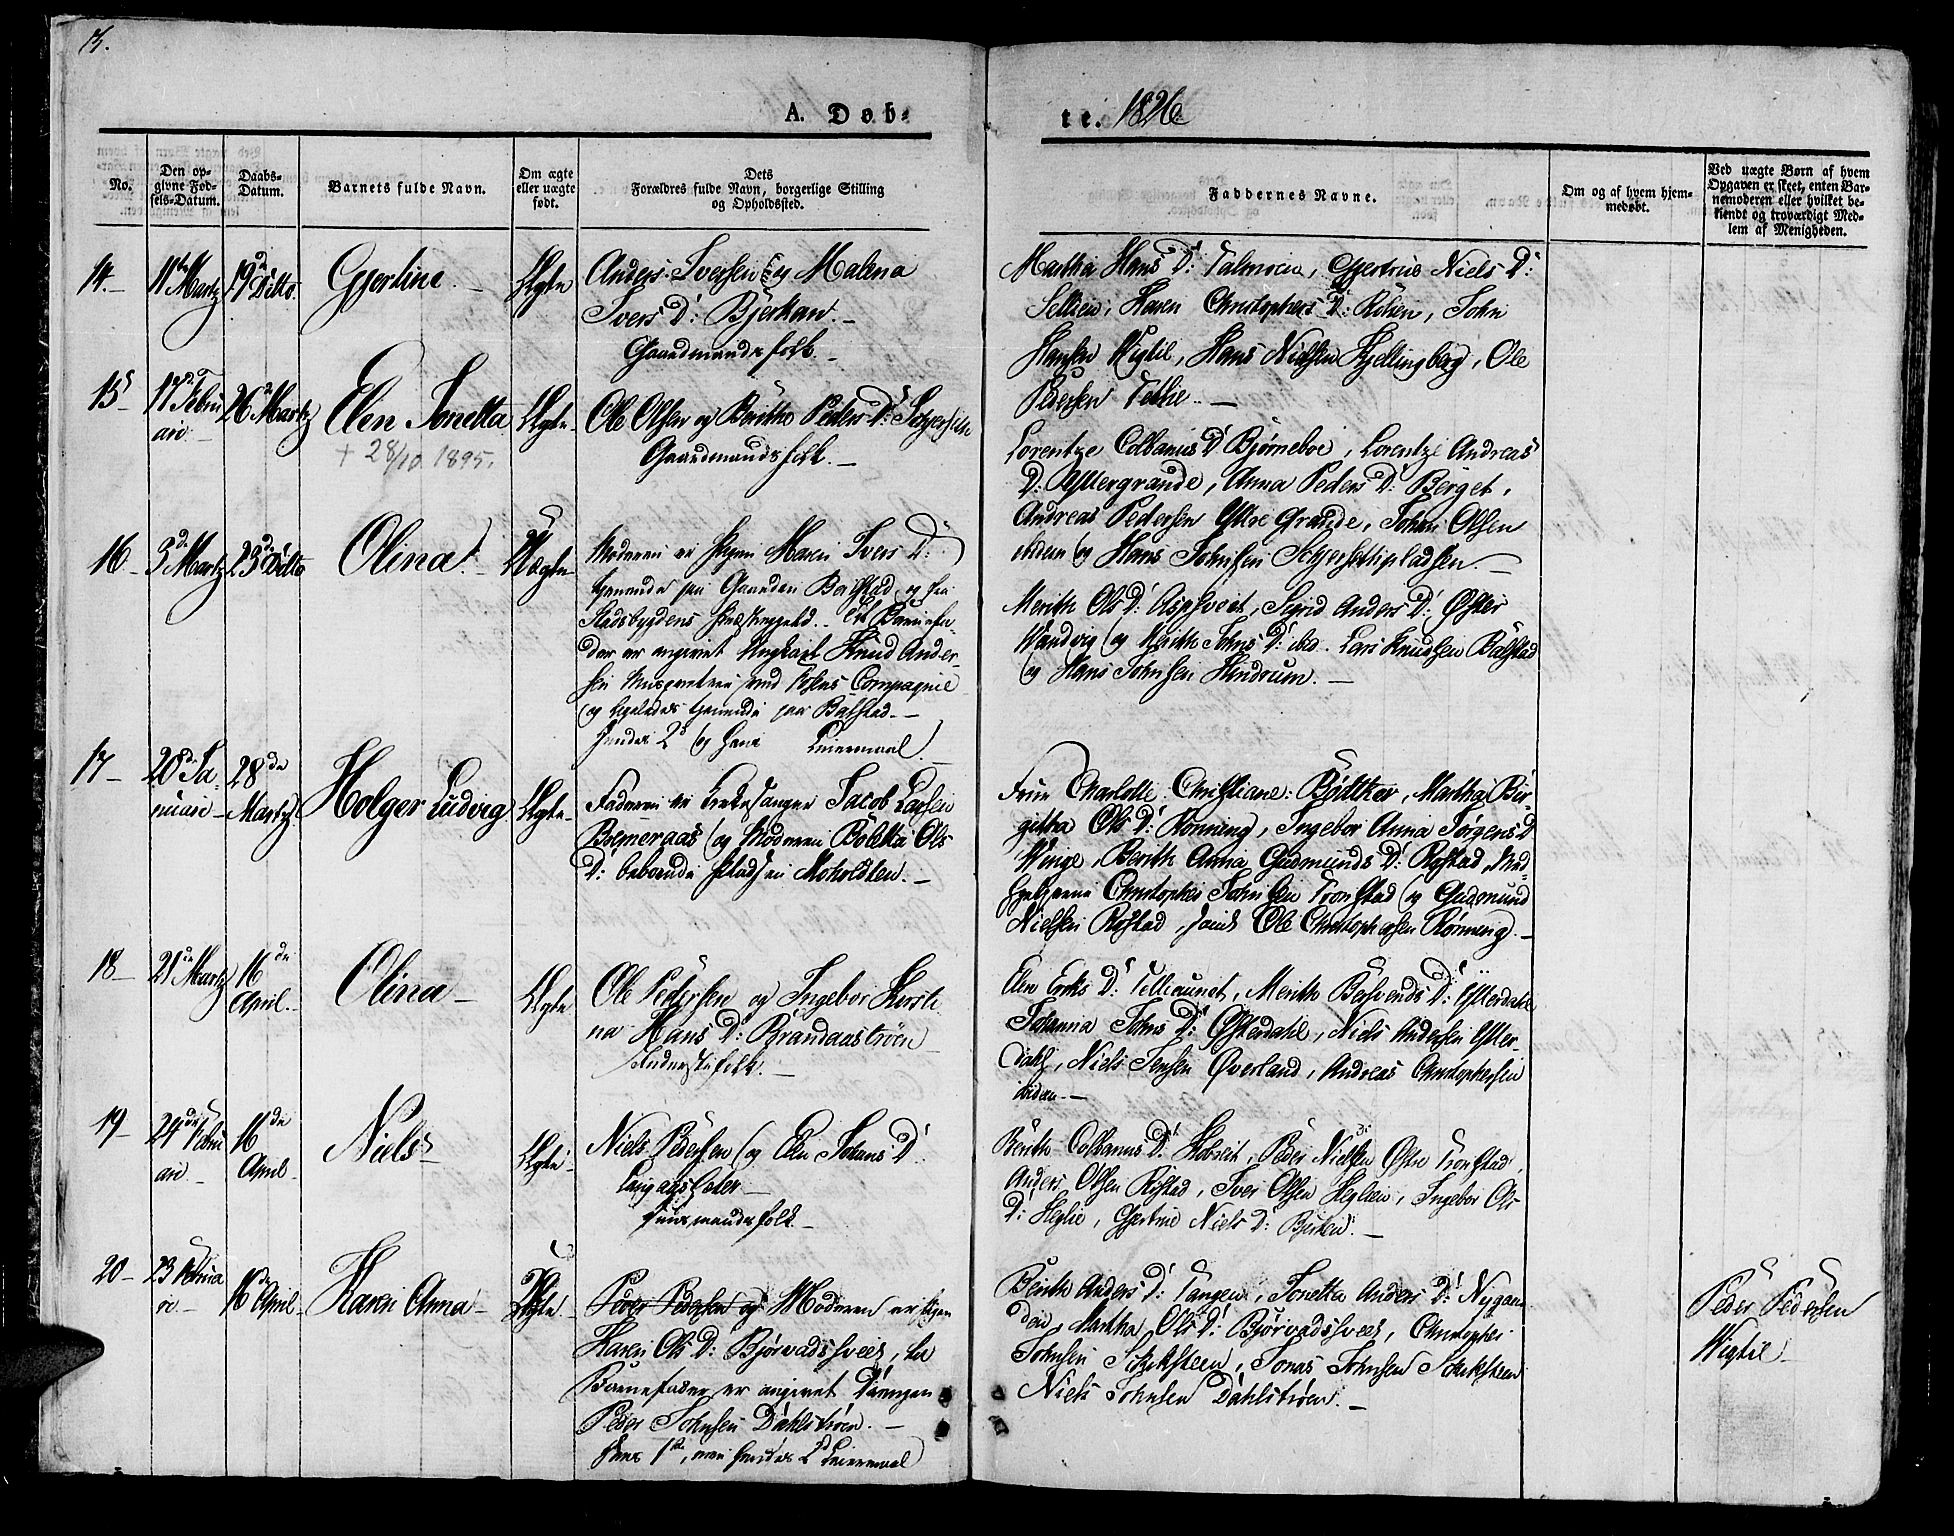 A. Døb-
te. 1826
No.
Den op-
givne Fød-
sels-Datum.
Daabs-
Datum.
Barnets fulde Navn.
Om ægte
eller uægte
født.
Dets
Forældres fulde Navn, borgerlige Stilling
og Opholdssted.
Faddernes Navne.
Om og af hvem hjem-
medøbt.
Ved uægte Børn af hvem
Opgaven er skeet, enten Bar-
nemoderen eller hvilket be-
kiendt og troværdigt Med-
lem af Menigheden.
14.
11te Martz
19de Ditto.
Gjertine
Ægte
Anders Iversen og Malena
Ivers D: Bjerkan.
Gaardmandsfolk.
Martha Hans D: , Gjertrue Niels D:
Karen Christophers D: , John
Hansen Vigtil, Hans Nielsen Hjellingberg, Ole
Pedersen
15
17de Febru
ari
26de Martz
Elen Jonetta
+ 28/10 1895.
Ægte
Ole Olsen og Berithe Peders D:
Gaardmandsfolk.
Lorentze Colbanus D: Bjørneboe, Lorentze Andreas
D: Yttergrande, Anna Peders D: Berget,
Andreas Pedersen Yttre Grande, Johan Olsen
ibidem og Hans Johnsen
16
3de Martz
23de Ditto
Olina
Uægte
Moderen er Pigen Maren Ivers D:
tjenende paa Gaarden og fra
Stadsbygdens Præstegjeld. Til Barnefa-
der er angivet Ungkarl Knud Ander-
sen ved Compagnie
og ligeledes tjenende paa Balstad.
hendes 2d og hans Leiermaal
Merith Ols D: , Sigrid Anders D: Østre
Wandvig og Merith Johns D: ibid. Lars Knudsen Balstad
og Hans Johnsen Hindrum.
17
20de Ja
nuari
28de
Martz
Holger Ludvig
Ægte
Faderen er Kirkesanger Jacob Larsen
og Moderen Boletta Ols
D: beboende Pladsen Moholdten.
Frue Charlotte Christiane Bøttker, Martha Bir-
githa Ols D: Rønning, Ingebor Anna Jørgens D:
Winge, Berith Anna Gudmunds D: Rostad, Med-
hjelperne Christopher Johnsen Tronstad og Gudmund
Nielsen Rostad, samt Ole Christophersen Rønning.
18
21de Martz
16de
April.
Olina
Ægte
Ole Pedersen og Ingebor Kirsti
na Hans D: Brandaastrøen
Inderstefolk.
Elen Eriks D: Tellaunet, Merith D: Ytterdahl
Johanna Johns D: Ytterdahl, Niels Andersen Ytter-
dahl, Niels Jensen Øverland, Andreas Christophersen
ibidem.
19
24de Febru
ari
16de
April
Niels
Ægte
Niels Pedersen og Elen Johans D:
Langaassæter
Huusmandsfolk
Berith Colbanus D: , Peder Nielsen Østre Tronstad,
Anders Olsen Ristad, Iver Olsen , Ingebor Ols
D: , Gjertrue Niels D:
20
23 Februa
ri
16de April
Karen Anna
Uægte
Peder Pedersen og Moderen er Pigen
Karen Ols D: Bjørvadssveet, til
Barnefader er angivet Drengen
Peder Johnsen Dahlstrøen.
Hans 1ste, men hendes 2d Leiermaal
Berith Anders D: Tangen, Jonetta Anders D: Nygaar
den, Martha Ols D: Bjørvadssveet, Christopher
Johnsen , Jonas Johnsen
Niels Johnsen Dahlstrøen.
Peder Pedersen
Vigtil